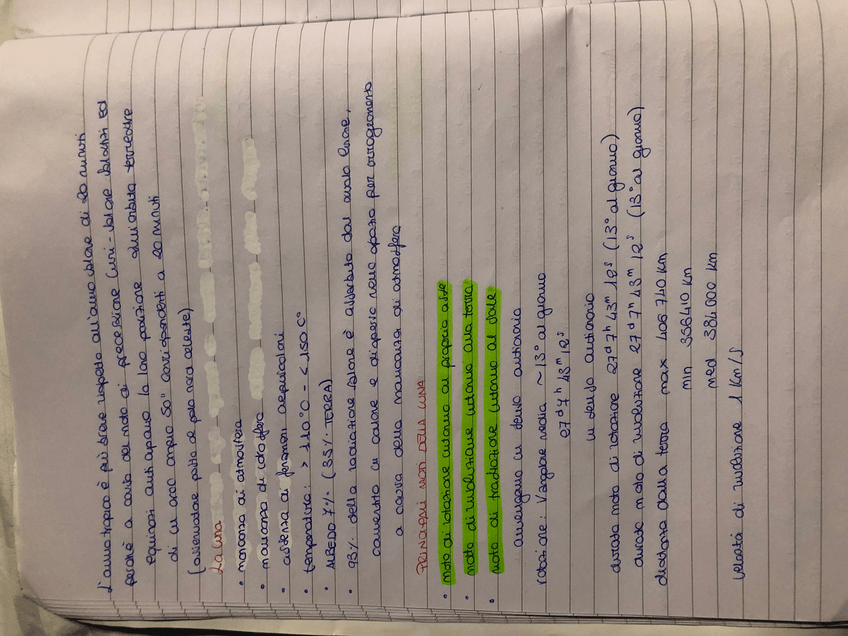 L'anno tropico è più breve rispetto all'anno solare di 20 minuti
perché a causa del moto di precessione luni-solare solstizi ed
equinozi anticipano la loro posizione sull'orbita terrestre
di un arco ampio 50" corrispondenti a 20 minuti
(osservatore posto al polo nord celeste)
La luna
• mancanza di atmosfera
• mancanza di idrosfera
• assenza di fenomeni
• temperatura: > 110°C - < 150 C°
• ALBEDO 7% (35% TERRA)
• 93% della radiazione solare è assorbito dal suolo lunare,
convertito in calore e disperso nello spazio per irraggiamento
a causa della mancanza di atmosfera
PRINCIPALI MOTI DELLA LUNA
• moto di rotazione intorno al proprio asse
• moto di rivoluzione intorno alla terra
• moto di traslazione intorno al sole
avvengono in senso antiorario
rotazione: V angolare media ~ 13° al giorno
27d 7h 43m 12s
in senso antiorario
durata moto di rotazione 27d 7h 43m 12s (13° al giorno)
durata moto di rivoluzione 27d 7h 43m 12s (13° al giorno)
distanza dalla terra max 406 740 km
min 356410 km
med 384 000 km
velocità di rivoluzione 1 Km/s